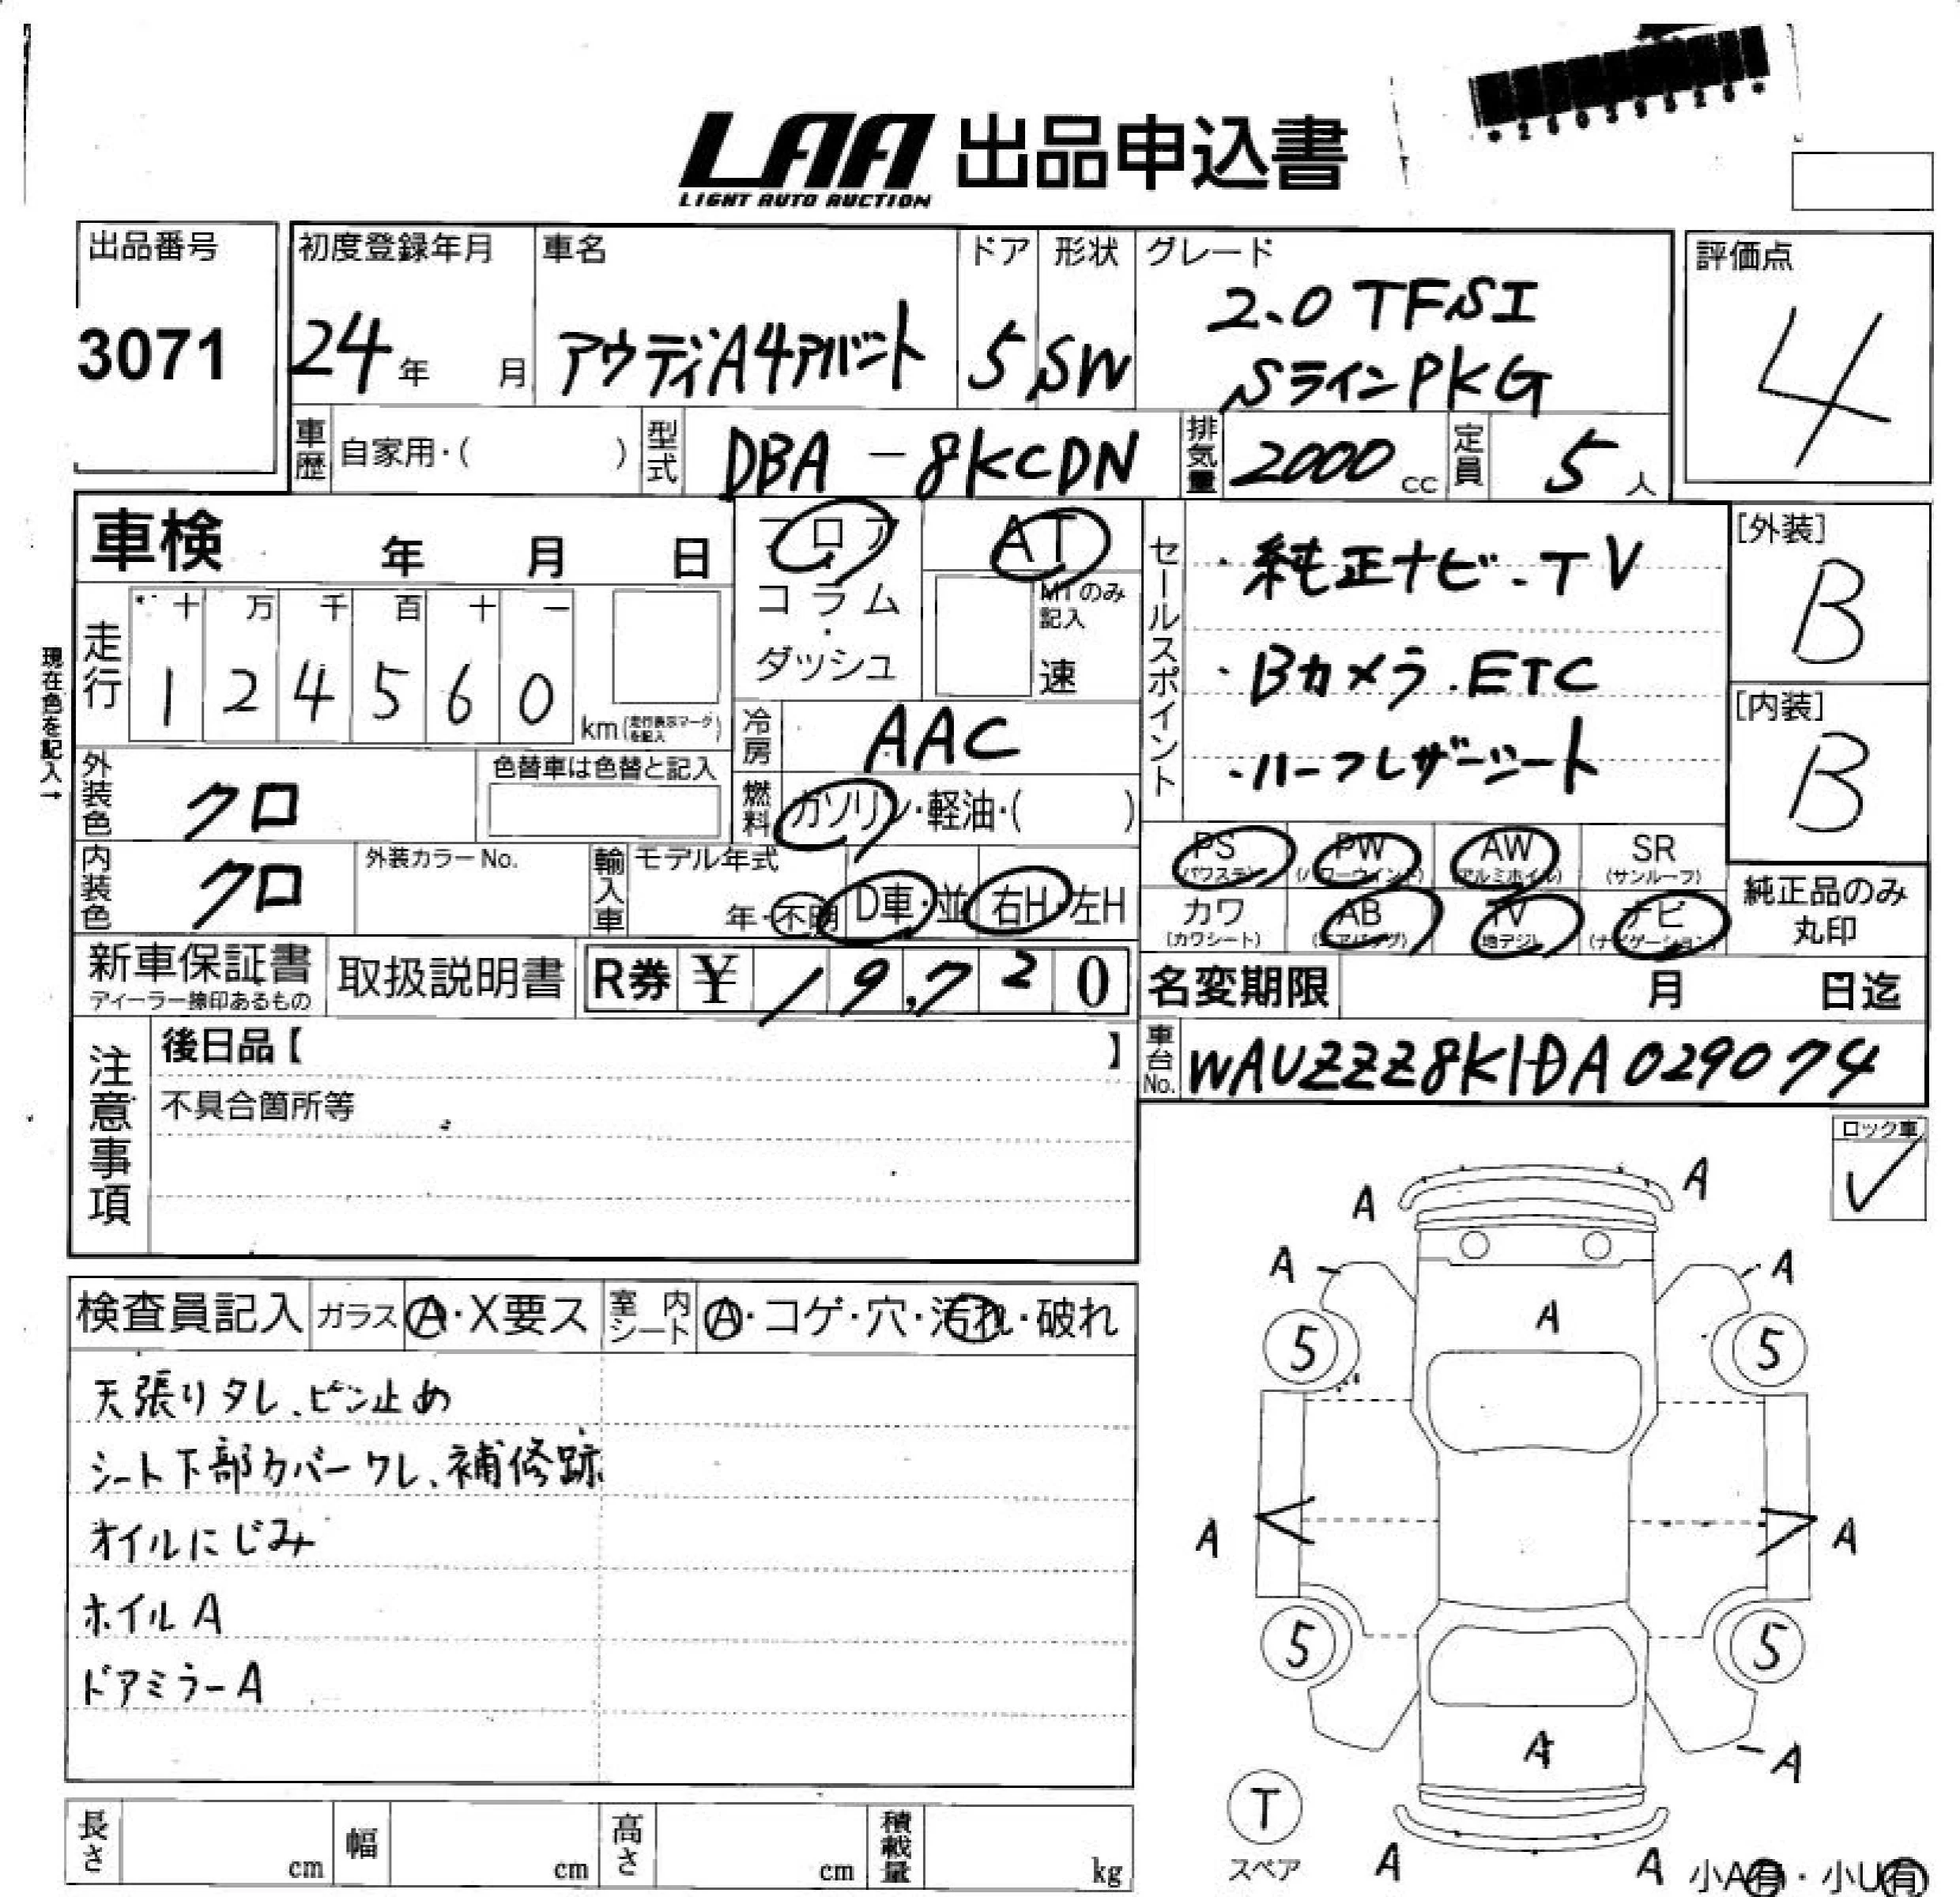 *25039525*
LAA 出品申込書
LIGHT AUTO AUCTION
出品番号
3071
初度登録年月
24年 月
車名
アウディA4アバント
ドア
5
形状
SW
グレード
2.0 TFSI
SラインPKG
評価点
4
車歴 自家用・( )
型式 DBA-8KCDN
排気量 2000 cc
定員 5 人
車検 年 月 日
フロア
コラム
・
ダッシュ
AT
MTのみ
記入
速
セールスポイント
・純正ナビ.TV
・Bカメラ.ETC
・ハーフレザーシート
[外装]
B
[内装]
B
現在色を記入→
走行
十 万 千 百 十 一
1 2 4 5 6 0
km(走行表示マークを記入)
冷房 AAC
外装色 クロ
色替車は色替と記入
燃料 ガソリン・軽油・( )
内装色 クロ
外装カラーNo.
輸入車
モデル年式
年・不明
D車・並
右H・左H
PS (パワステ)
PW (パワーウインド)
AW (アルミホイル)
SR (サンルーフ)
カワ (カワシート)
AB (エアバッグ)
TV (地デジ)
ナビ (ナビゲーション)
純正品のみ
丸印
新車保証書
ディーラー捺印あるもの
取扱説明書
R券 ¥ 19,720
名変期限 月 日迄
注意事項
後日品【 】
不具合箇所等
車台No. WAUZZZ8K1DA029074
ロック車
✓
検査員記入
ガラス A・X要ス
室内シート A・コゲ・穴・汚れ・破れ
天張りタレ、ピン止め
シート下部カバーワレ、補修跡
オイルにじみ
ホイルA
ドアミラーA
A A
A A
A
5 5
A A
5 5
A
A
T
スペア
A A
小A有・小U有
長さ cm
幅 cm
高さ cm
積載量 kg